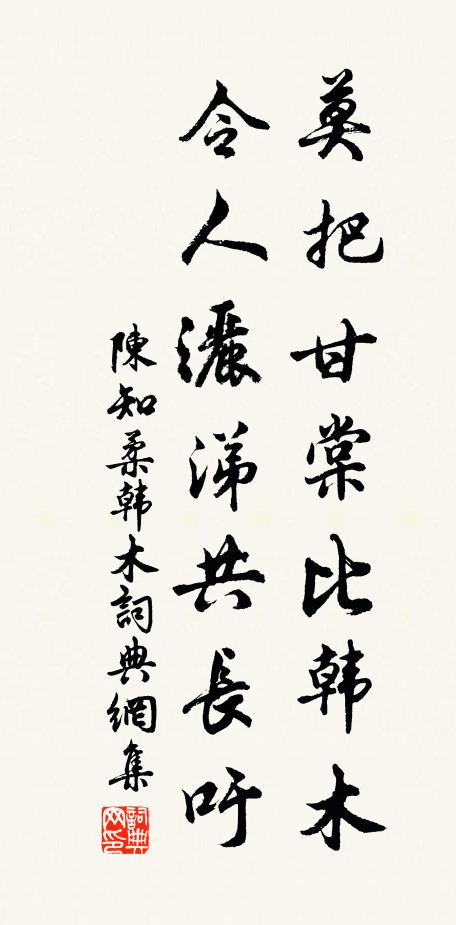 莫把甘棠比韩木
令人灑涕共長吁
陳知柔韩木詞典網集
詞典网印